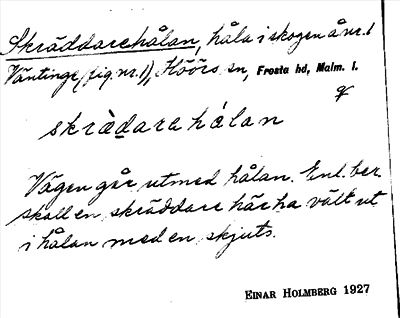 Skräddarehålan, håla i skogen å nr. 1
Väntinge, (fig nr. 1), Höörs sn, Frosta hd, Malm. l.
skrädara hálan
Vägen går utmed hålan. Enl. ber.
skall en skräddare här ha vält ut
i hålan med en skjuts.
EINAR HOLMBERG 1927